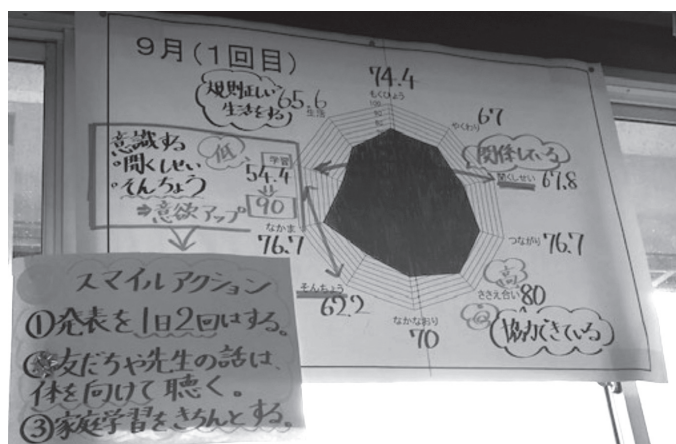 9月(1回目)
規則正しい
生活をする
65.6
生活
74.4
もくひょう
100
90
80
67
やくわり
関係している
聞くしせい
67.8
つながり
76.7
高
ささえ合い
80
協力できている
なかなおり
70
そんちょう
62.2
なかま
76.7
低
学習
54.4
90
意識する
・聞くしせい
・そんちょう
⇒意欲アップ
スマイルアクション
①発表を1日2回はする。
②友だちや先生の話は、
体を向けて聴く。
③家庭学習をきちんとする。